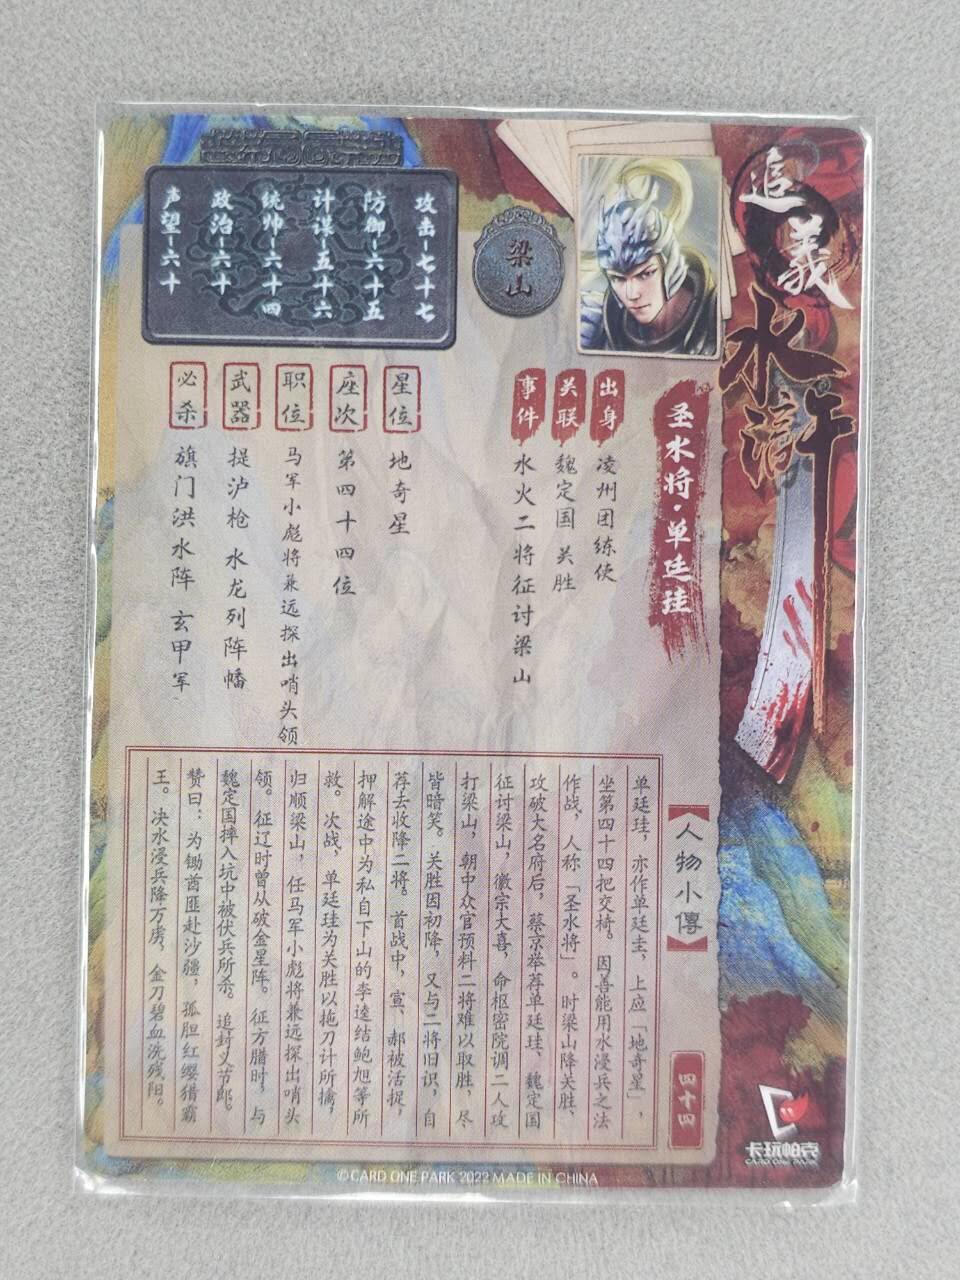 追義
水滸
圣水将·单廷珪
梁山
攻击-七十七
防御-六十五
计谋-五十六
统帅-六十四
政治-六十
声望-六十
出身 凌州团练使
关联 魏定国 关胜
事件 水火二将征讨梁山
星位 地奇星
座次 第四十四位
职位 马军小彪将兼远探出哨头领
武器 提泸枪 水龙列阵幡
必杀 旗门洪水阵 玄甲军
【人物小傳】
四十四
单廷珪，亦作单廷圭，上应「地奇星」，
坐第四十四把交椅。因善能用水浸兵之法
作战，人称「圣水将」。时梁山降关胜、
攻破大名府后，蔡京举荐单廷珪、魏定国
征讨梁山，徽宗大喜，命枢密院调二人攻
打梁山，朝中众官预料二将难以取胜，尽
皆暗笑。关胜因初降，又与二将旧识，自
荐去收降二将。首战中，宣、郝被活捉，
押解途中为私自下山的李逵结鲍旭等所
救。次战，单廷珪为关胜以拖刀计所擒，
归顺梁山，任马军小彪将兼远探出哨头
领。征辽时曾从破金星阵。征方腊时，与
魏定国摔入坑中被伏兵所杀。追封义节郎。
赞曰：为锄酋匪赴沙疆，孤胆红缨猎霸
王。决水浸兵降万虏，金刀碧血洗残阳。
卡玩帕克
CARD ONE PARK
©CARD ONE PARK 2022 MADE IN CHINA